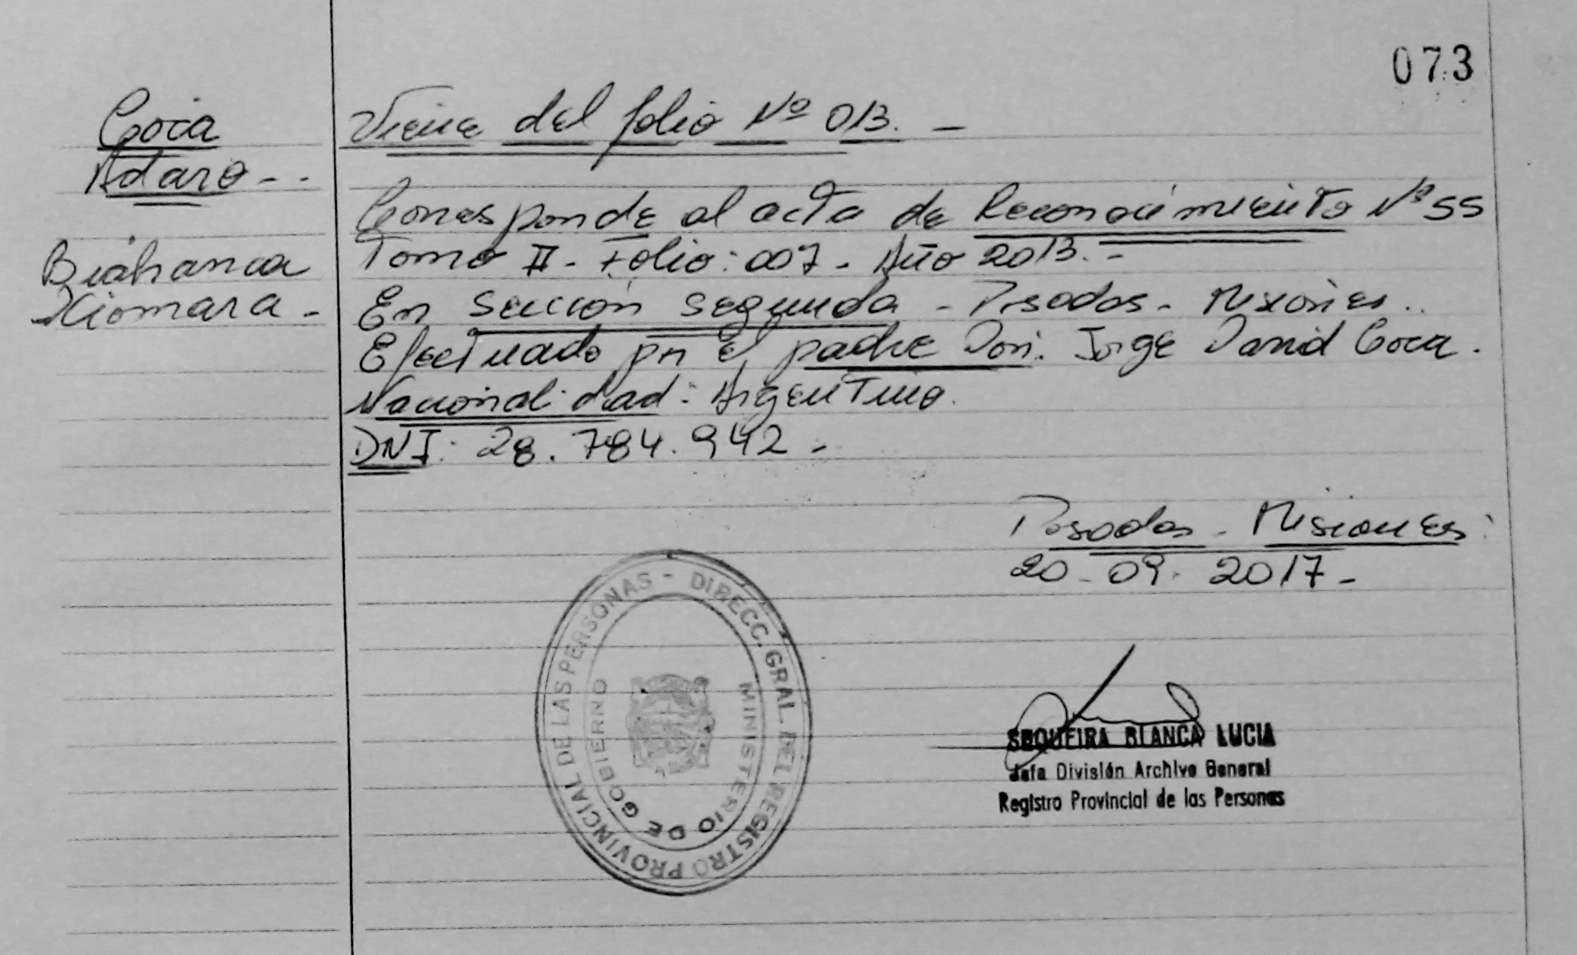 073
Coca
Adaro - -
Biahanca
Xiomara -
Viene del folio Nº 013. -
Corresponde al acta de Reconocimiento Nº 55
Tomo II - Folio: 007 - Año 2013. -
En Sección Segunda - Posadas - Misiones..
Efectuado por el padre Don. Jorge David Coca.
Nacionalidad: Argentino.
DNI: 28.784.942 -
Posadas - Misiones:
20-09-2017-
DIRECC. GRAL. DEL REGISTRO PROVINCIAL DE LAS PERSONAS -
MINISTERIO DE GOBIERNO
SEQUEIRA BLANCA LUCIA
Jefa División Archivo General
Registro Provincial de las Personas